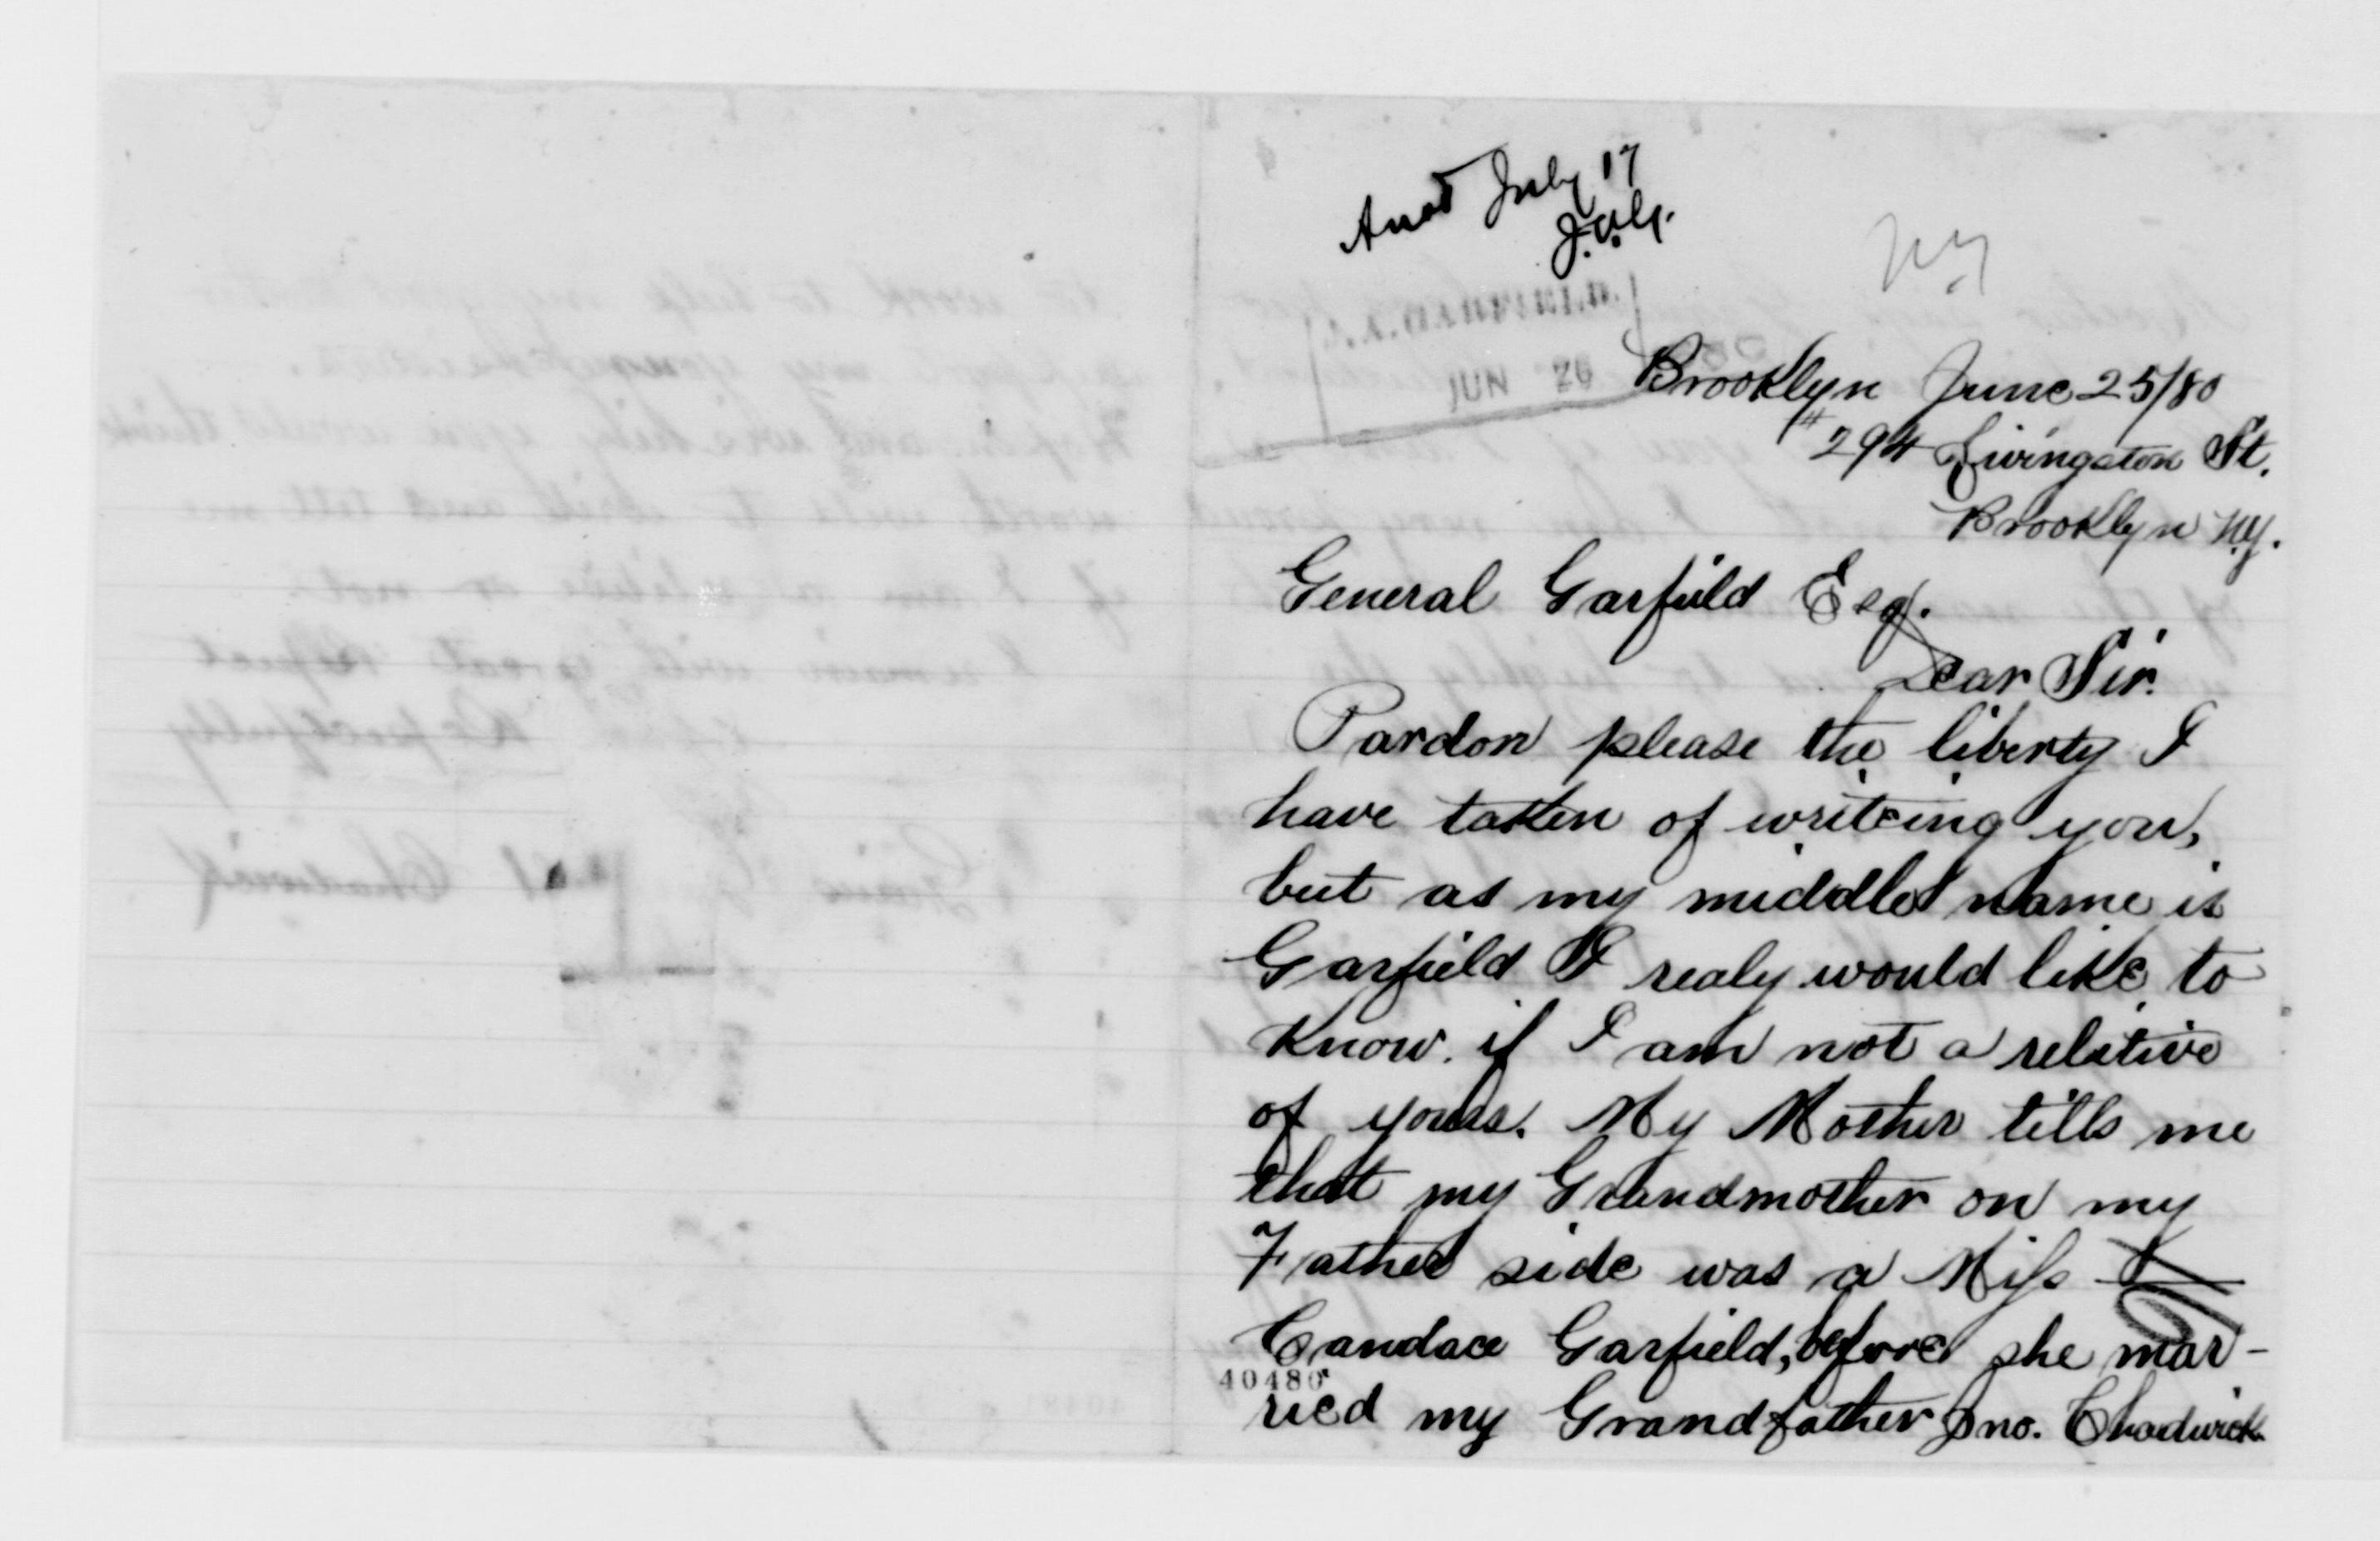 Ansd July 17
J.A.G.
N.Y.
J.A. GARFIELD.
JUN 26 1880
Brooklyn June 25/80
#294 Livingston St.
Brooklyn N.Y.
General Garfield Esq.
Dear Sir.
Pardon please the liberty I
have taken of writeing you,
but as my middle name is
Garfield I realy would like to
know. if I am not a relitive
of yours. My Mother tells me
that my Grandmother on my
Father side was a Miss
Candace Garfield, before she mar-
ried my Grandfather Jno. Chadwick
40480